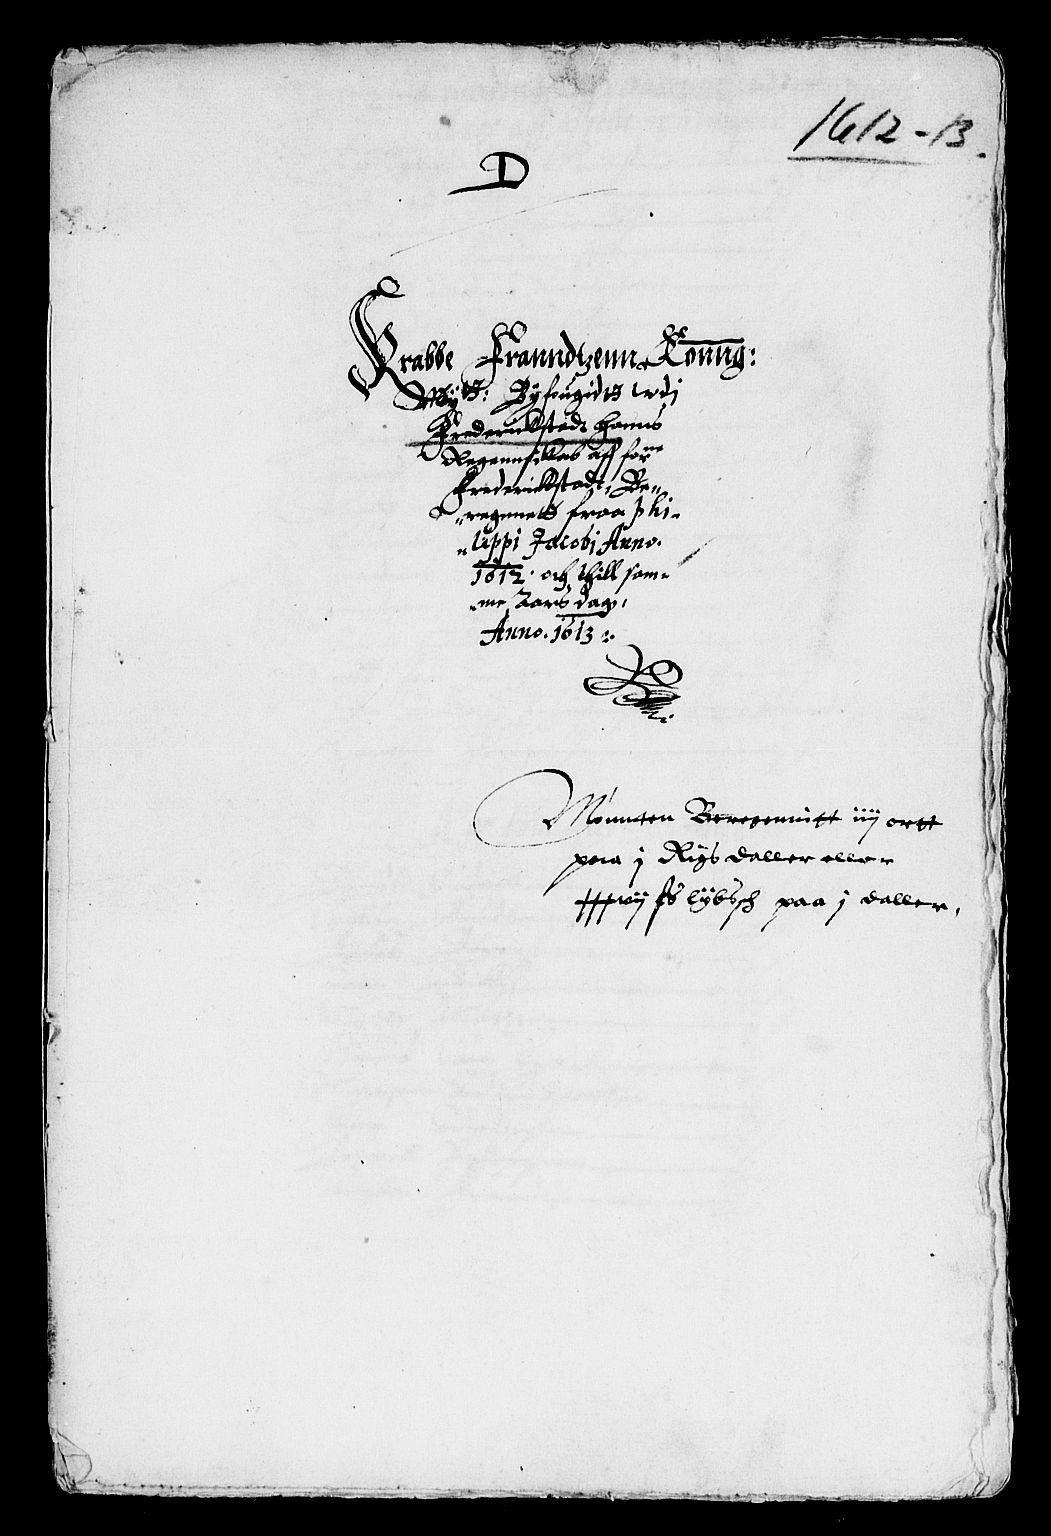 1612-13.
D
Krabbe Franndtzenn Konng:
May:ts: Byfougidts udj
Frederickstadt hanns
Regennskab aff for:ne
Frederickstadt, Be„
„regenets fraa phi„
„lippi Jacobj Anno.
1612. och thill sam„
„me Aars dag,
Anno. 1613:
Mønnten Beregennitt iiij ortt
paa j Rigs daller eller
xxxvij ß lybsch paa j daller,